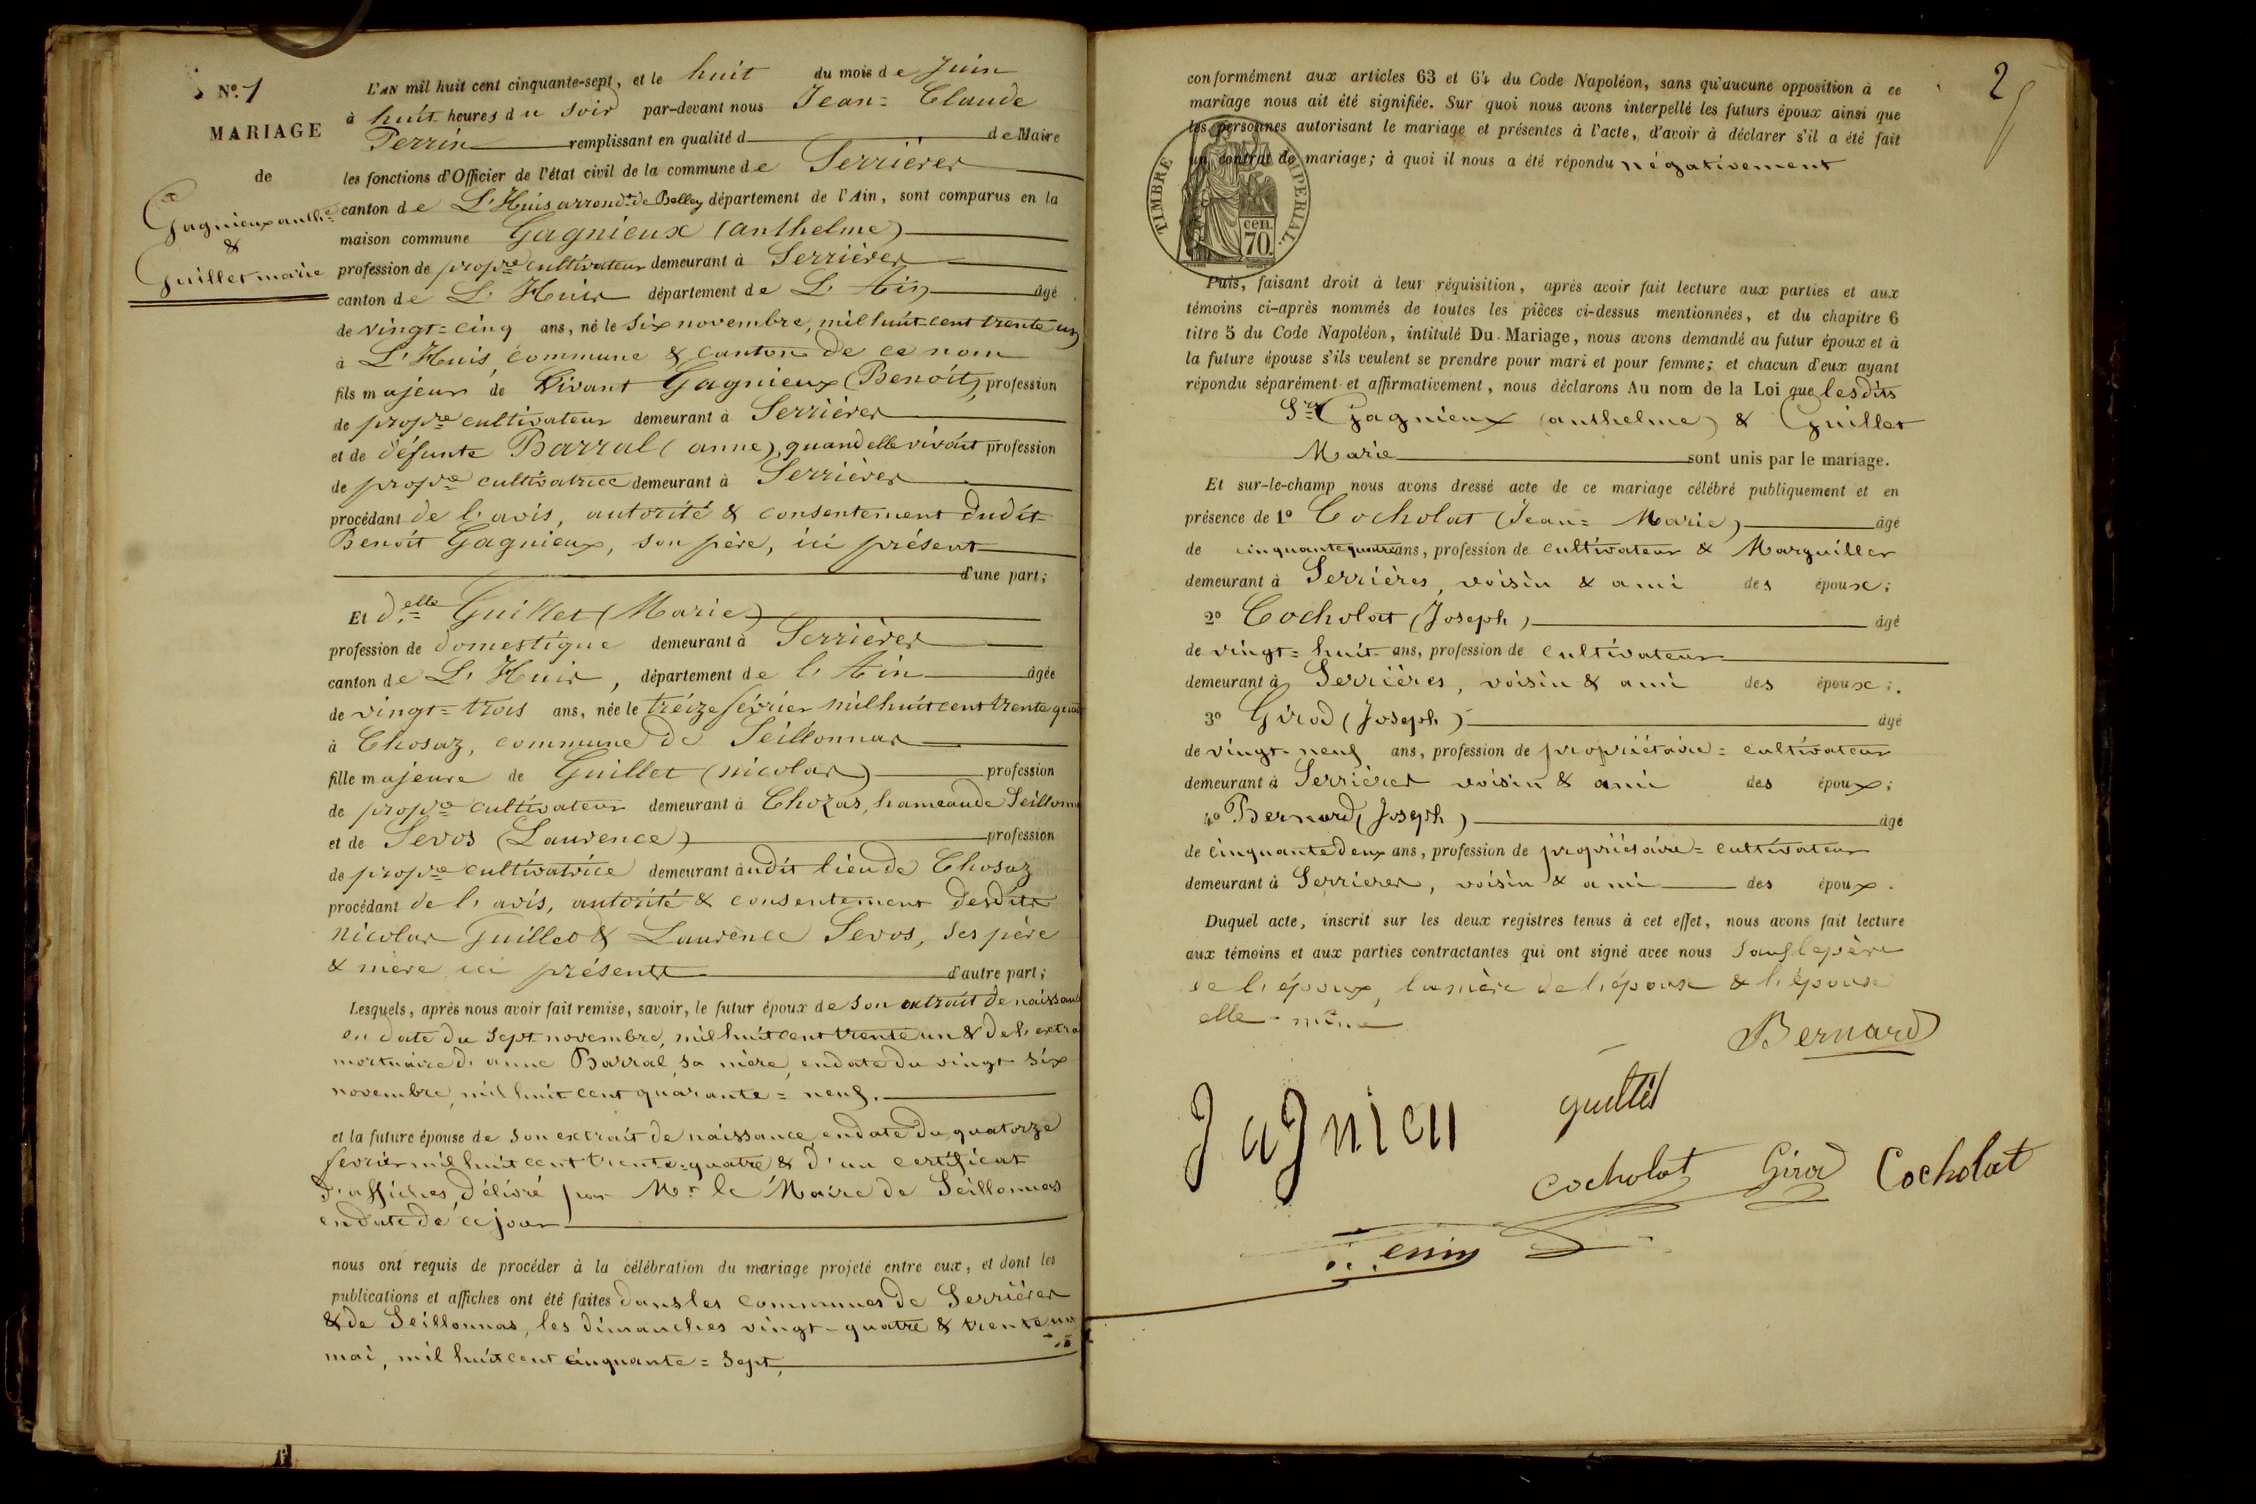 N.º 1
MARIAGE
de
Gagnieux anth.e
&
Guillet marie
L'AN mil huit cent cinquante-sept, et le huit du mois de Juin
à huit heures du soir par-devant nous Jean=Claude
Perrin remplissant en qualité d de Maire
les fonctions d'Officier de l'état civil de la commune de Serrières
canton de L'Huis arrond.t de Belley département de l'Ain, sont comparus en la
maison commune Gagnieux (anthelme)
profession de propre cultivateur demeurant à Serrières
canton de L'Huis département de L'Ain âgé
de vingt=cinq ans, né le six novembre, mil huit cent trente un
à L'Huis, commune & canton de ce nom
fils majeur de vivant Gagnieux (Benoit), profession
de propre cultivateur demeurant à Serrières
et de défunte Barral (anne), quand elle vivait profession
de propre cultivatrice demeurant à Serrières
procédant de l'avis, autorité & consentement dudit
Benoit Gagnieux, son père, ici présent
d'une part;
Et d.elle Guillet (Marie)
profession de domestique demeurant à Serrières
canton de L'Huis, département de l'Ain âgée
de vingt=trois ans, née le treize février mil huit cent trente quat
à Chosaz, commune de Seillonnas
fille majeure de Guillet (nicolas) profession
de propre cultivateur demeurant à Chozas, hameau de Seillonn
et de Sevos (Laurence) profession
de propre cultivatrice demeurant àudit lieu de Chosaz
procédant de l'avis, autorité & consentement desdits
nicolas Guillet & Laurence Sevos, ses père
& mère ici présents d'autre part;
Lesquels, après nous avoir fait remise, savoir, le futur époux de son extrait de naissanc
en date du sept novembre, mil huit cent trente un & de l'extra
mortuaire d'anne Barral, sa mère, en date du vingt six
novembre, mil huit cent quarante=neuf.
et la future épouse de son extrait de naissance, en date du quatorze
fevrier mil huit cent trente=quatre & d'un certificat
d'affiches délivré par Mr le Maire de Seillonnas
en date de ce jour
nous ont requis de procéder à la célébration du mariage projeté entre eux, et dont les
publications et affiches ont été faites dans les communes de Serrières
& de Seillonnas, les dimanches vingt-quatre & trente un
mai, mil huit cent cinquante=sept,
2
conformément aux articles 63 et 64 du Code Napoléon, sans qu'aucune opposition à ce
mariage nous ait été signifiée. Sur quoi nous avons interpellé les futurs époux ainsi que
les personnes autorisant le mariage et présentes à l'acte, d'avoir à déclarer s'il a été fait
un contrat de mariage; à quoi il nous a été répondu négativement
TIMBRE IMPERIAL.
cen.
70.
Puis, faisant droit à leur réquisition, après avoir fait lecture aux parties et aux
témoins ci-après nommés de toutes les pièces ci-dessus mentionnées, et du chapitre 6
titre 5 du Code Napoléon, intitulé Du Mariage, nous avons demandé au futur époux et à
la future épouse s'ils veulent se prendre pour mari et pour femme; et chacun d'eux ayant
répondu séparément et affirmativement, nous déclarons Au nom de la Loi que lesdits
Srs Gagnieux (anthelme) & Guillet
Marie sont unis par le mariage.
Et sur-le-champ nous avons dressé acte de ce mariage célébré publiquement et en
présence de 1º Cocholat (Jean=Marie) âgé
de cinquante quatre ans, profession de cultivateur & Marguiller
demeurant à Serrières, voisin & ami des époux;
2º Cocholat (Joseph) âgé
de vingt=huit ans, profession de cultivateur
demeurant à Serrières, voisin & ami des époux;
3º Girod (Joseph) âgé
de vingt-neuf ans, profession de propriétaire=cultivateur
demeurant à Serrières voisin & ami des époux;
4º Bernard (Joseph) âgé
de cinquante deux ans, profession de propriétaire=cultivateur
demeurant à Serrieres, voisin & ami des époux.
Duquel acte, inscrit sur les deux registres tenus à cet effet, nous avons fait lecture
aux témoins et aux parties contractantes qui ont signé avec nous sauf le père
de l'époux, la mère de l'épouse & l'épouse
elle-même
Bernard
guillet
Jagnieu
cocholat Girod Cocholat
Perrin